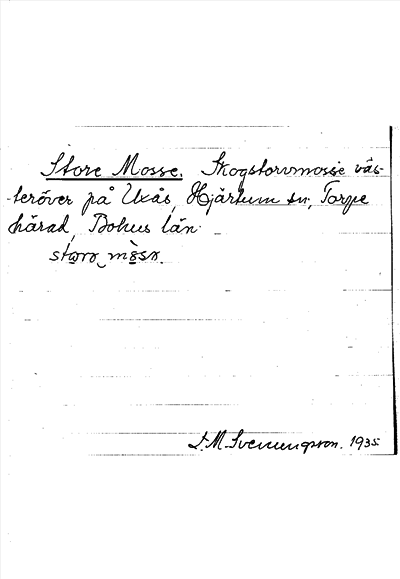 Store Mosse. Skogstorvmosse väs-
teröver på Ukås, Hjärtum sn, Torpe
härad, Bohus län.
S. M. Svenungsson. 1935